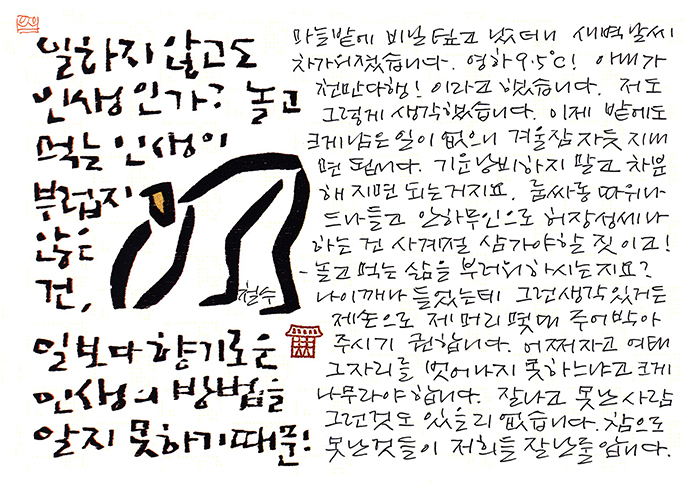 일하지 않고도
인생인가? 놀고
먹는 인생이
부럽지
않은
건,
철수
일보다 향기로운
인생의 방법을
알지 못하기때문!
마늘밭에 비닐 덮고 났더니 새벽날씨
차가워졌습니다. 영하9.5℃! 아내가
천만다행! 이라고 했습니다. 저도
그렇게 생각했습니다. 이제 밭에도
크게남은일이 없으니 겨울잠자듯 지내
면 됩니다. 기운낭비하지 말고 차분
해지면 되는거지요. 룸싸롱 따위나
드나들고 안하무인으로 허장성세나
하는 건 사계절 삼가야할 짓이고!
- 놀고 먹는 삶을 부러워하시는지요?
나이깨나 들었는데 그런생각있거든
제손으로 제머리 몇대 쥐어박아
주시기 권합니다. 어쩌자고 여태
그자리를 벗어나지 못하느냐고 크게
나무라야 합니다. 잘나고 못난사람
그런것도 있을리 없습니다. 참으로
못난것들이 저희들 잘난줄 압니다.